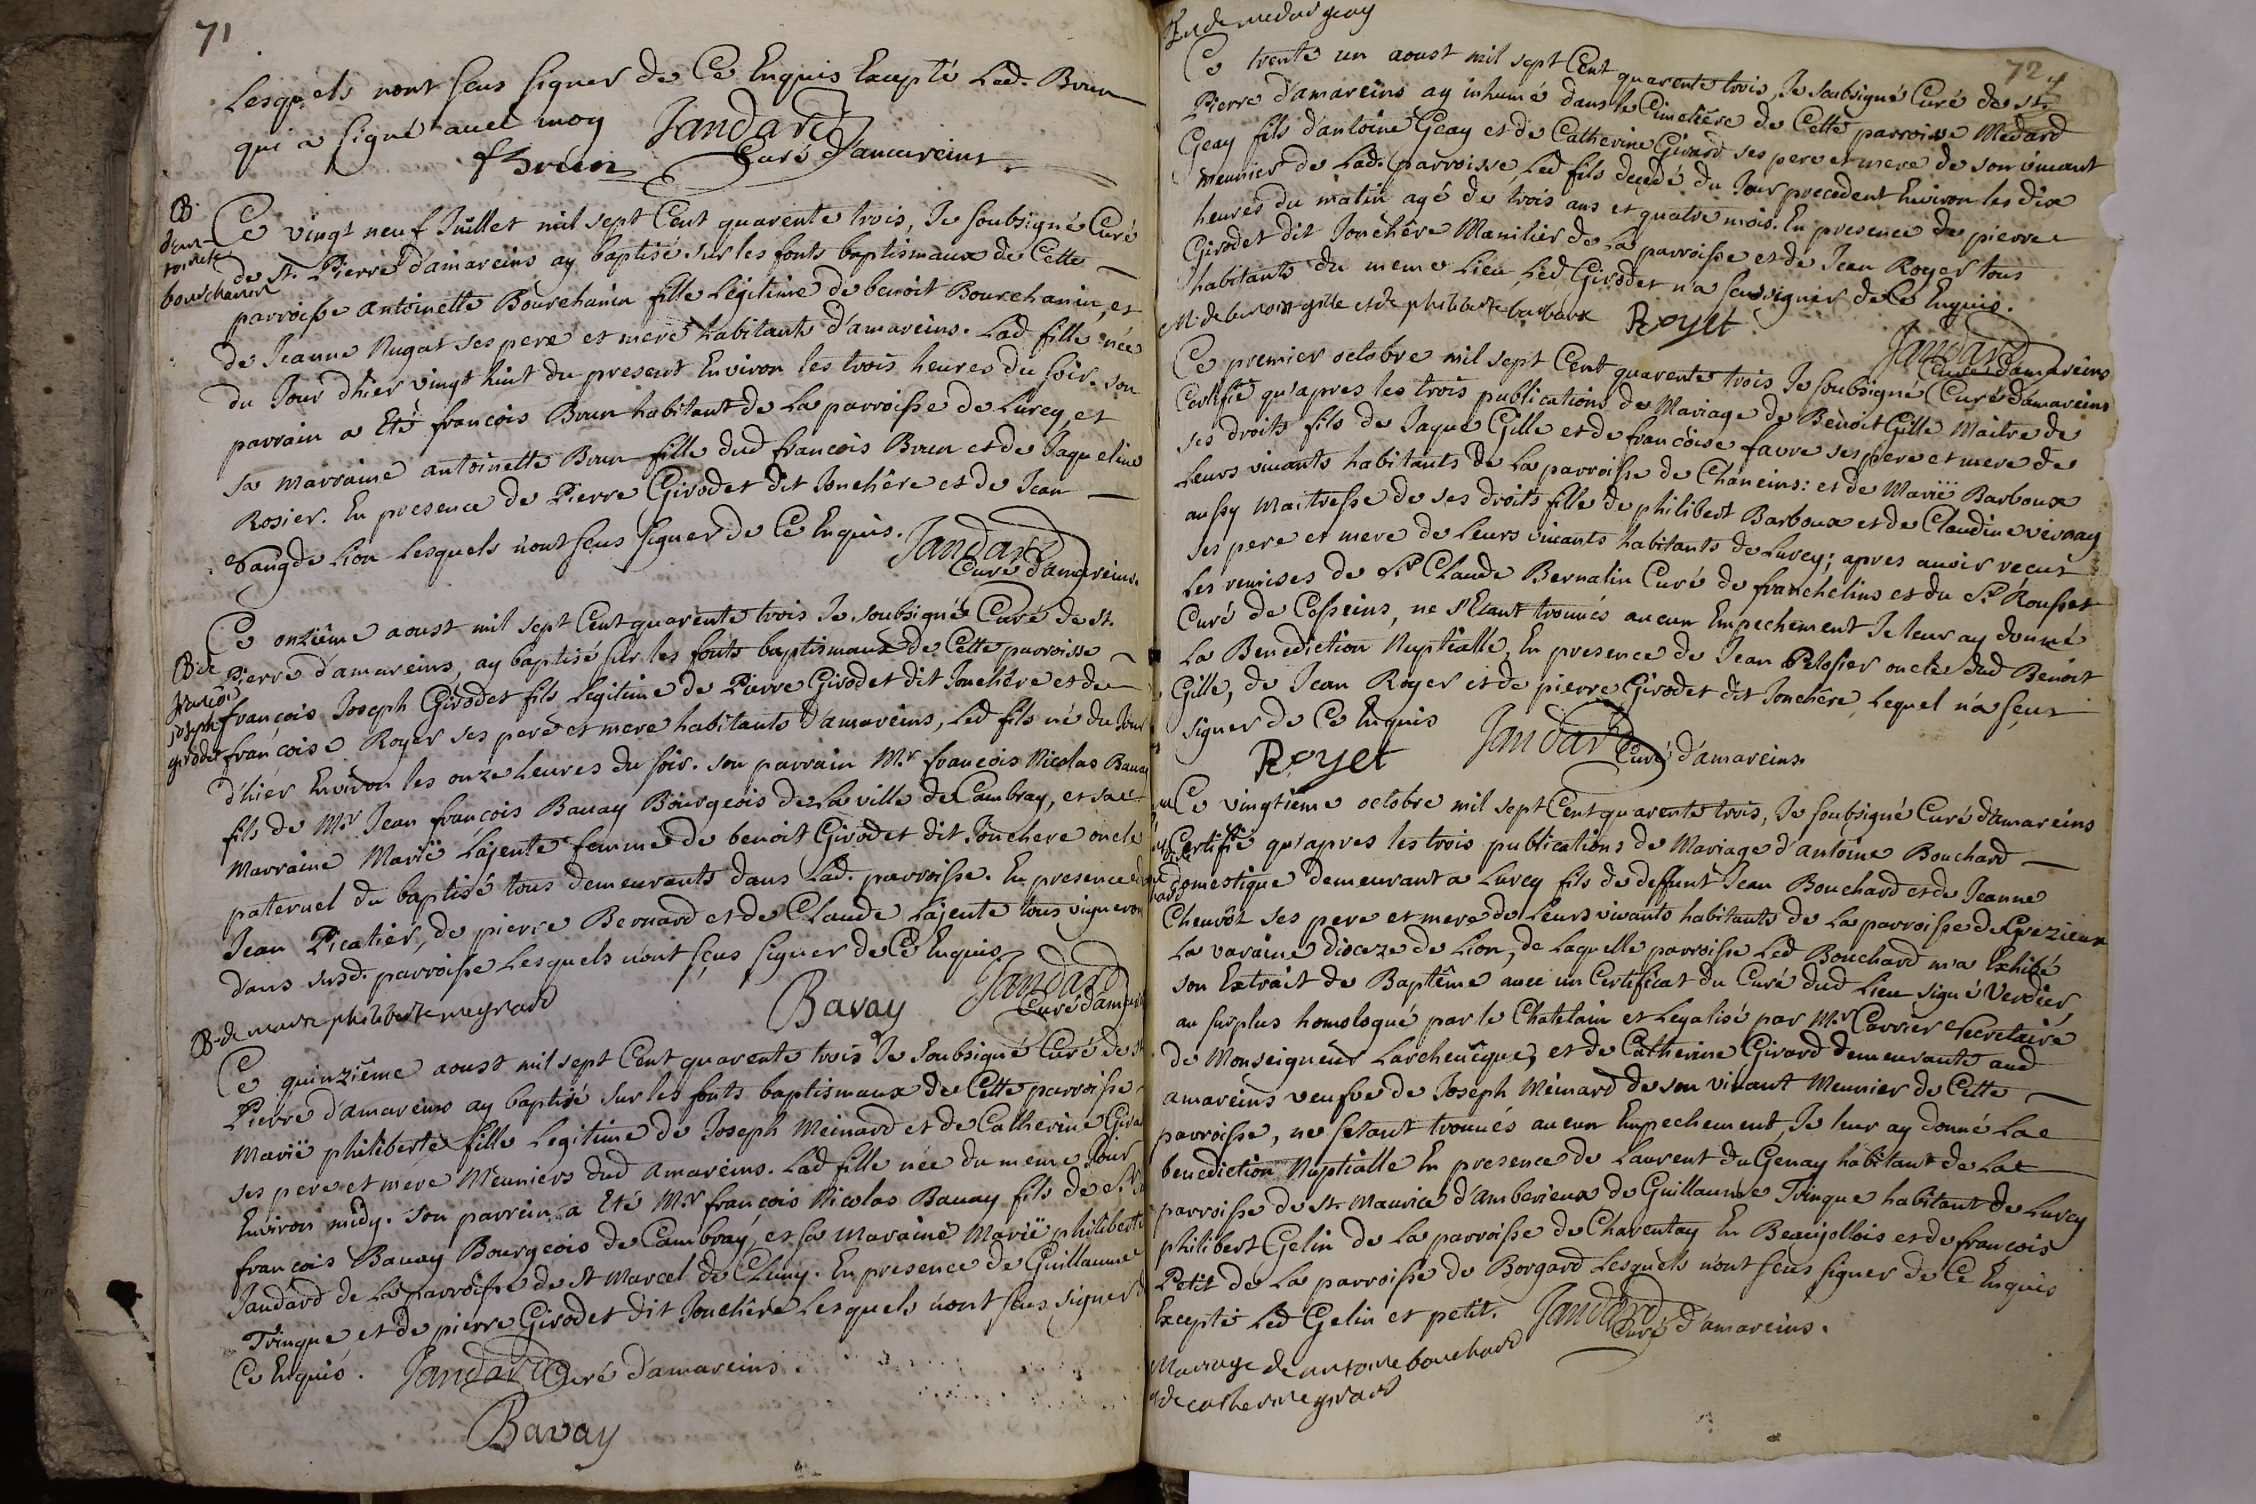 71
Lesquels nont sçus signer de Ce Enquis Excepté Led. Brun
qui a signé avec moy Jandard
fBrun Curé d'amareins
B.
d'ant
toinete
bourchanin
Ce vingt neuf Juillet mil sept Cent quarente trois, Je soubsigné Curé
de St. Pierre d'amareins ay baptisé sur les fonts baptismaux de Cette
parroisse antoinette Bourchanin fille Légitime de benoit Bourchanin, et
de Jeanne Nugat ses pere et mere habitants d'amareins. Lad fille née
du Jour d'hier vingt huit du present Environ les trois heures du soir. son
parrain a Eté francois Brun habitant de La parroisse de Lurcy, et
sa marraine antoinette Brun fille dud francois Brun et de Jaqueline
Rosier. En presence de Pierre Girodet dit Jonchêre et de Jean
Lion Lesquels n'ont sçus signer de Ce Enquis. Jandard
Curé d'amareins.
B de
francois
joseph
girodet
Ce onzième aoust mil sept Cent quarente trois Je soubsigné Curé de St.
Pierre d'amareins, ay baptisé sur les fonts baptismaux de Cette parroisse
françois Joseph Girodet fils Legitime de Pierre Girodet dit Jonchêre et de
françoise Royer ses pere et mere habitants d'amareins, Led fils né du Jour
d'hier Environ les onze heures du soir. son parrain Mr. francois Nicolas Bavay
fils de Mr Jean francois Bavay Bourgeois de La ville de Cambray, et sa
marraine Marië Lajente femme de benoit Girodet dit Jonchere oncle
paternel du baptisé tous demeurants dans Lad. parroisse. En presence de
Jean Picatier, de pierre Bernard et de Claude Lajente tous vignerons
dans susd. parroisse Lesquels n'ont sçus signer de Ce Enquis
Bavay Jandard
Curé d'amareins
B-de marie philiberte meynard
Ce quinzième aoust mil sept Cent quarente trois Je Soubsigné Curé de St
Pierre d'amareins ay baptisé sur les fonts baptismaux de Cette parroisse
Marië philiberte fille Legitime de Joseph Meinard et de Catherine Girard
ses pere et mere Meuniers dud amareins. Lad fille née du meme Jour
Environ midy. son parrein a Eté Mr françois Nicolas Bavay fils de Sr
françois Bavay Bourgeois de Cambray, et sa Maraine Marië philiberte
Jandard de La parroisse de St Marcel de Cluny. En presence de Guillaume
Tringue et de pierre Girodet dit Jonchêre Lesquels n'ont sçus signer
Ce Enquis. Jandard Curé d'amareins.
Bavay
72
En de medar geay
Ce trente un aoust mil sept Cent quarente trois, Je soubsigné Curé de St.
Pierre d'amareins ay inhumé dans le Cimetière de Cette parroisse Medard
Geay fils d'antoine Geay et de Catherine Girard ses pere et mere de son vivant
meunier de Lad. parroisse, Led fils decedé du Jour precedent Environ les dix
heures du matin agé de trois ans et quatre mois. En presence de pierre
Girodet dit Jonchére Manilier de La parroisse et de Jean Royer tous
habitants du meme Lieu, Led Girodet n'a sçu signer de Ce Enquis.
M. de benoit gille et de philiberte barbaux Royet
Jandard
Curé d'amareins
Ce premier octobre mil sept Cent quarente trois Je soubsigné Curé d'amareins
Certifie qu'apres les trois publications de Mariage de Benoit Gille Maitre de
ses droits fils de Jaque Gille et de françoise favre ses pere et mere de
Leurs vivants habitants de La parroisse de Chaneins: et de Marië Barboux
aussy Maitresse de ses droits fille de philibert Barboux et de Claudine vernay
ses pere et mere de Leurs vivants habitants de Lurcy; apres avoir recut
Les remises de Sr Claude Bernalin Curé de franchelins et du Sr Rousset
Curé de Cesseins, ne s'Etant trouvés aucun Empechement Je leur ay donné
La Benediction Nuptialle, En presence de Jean Pelosier oncle dud Benoit
Gille, de Jean Royer et de pierre Girodet dit Jonchère, Lequel n'a sçeut
signer de Ce Enquis Jandard
Royet Curé d'amareins.
Ce vingtieme octobre mil sept Cent quarente trois, Je soubsigné Curé d'amareins
Certifie qu'apres les trois publications de Mariage d'antoine Bouchard
domestique demeurant a Lurcy fils de deffunt Jean Bouchard et de Jeanne
Cheuvôt ses pere et mere de Leurs vivants habitants de La parroisse de Grezieux
La varaine diocaze de Lion, de Laquelle parroisse Led Bouchard m'a Exhibé
son Extrait de Baptême avec un Certificat du Curé dud Lieu signé Verdier,
au surplus homologué par le Chatelain et Legalisé par Mr Carrier Secretaire
de Monseigneur Larchevêque, et de Catherine Girard demeurante aud
amareins veufve de Joseph Meinard de son vivant Meunier de Cette
parroisse, ne setant trouvés aucun Empechement, Je leur ay donné La
benediction Nuptialle En presence de Laurent du Genay habitant de La
parroisse de St. Maurice d'amberieux de Guillaume Tringue habitant de Lurcy
philibert Gelin de La parroisse de Charentay En Beaujollois et de françois
Petit de La parroisse de Borgard Lesquels n'ont sçus signer de Ce Enquis
Excepté Led Gelin et petit. Jandard
Curé d'amareins.
Mariage de antoine bouchard
et de catherine girard